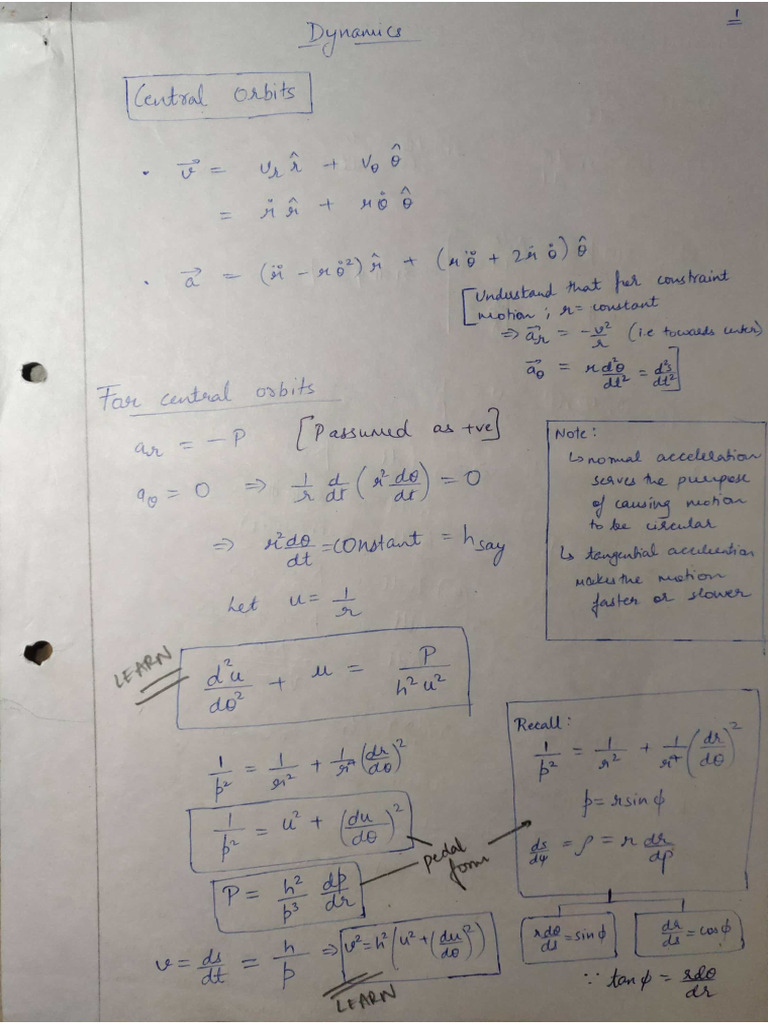 1
Dynamics
Central Orbits
• v⃗ = v_r r̂ + v_θ θ̂
= ṙ r̂ + rθ̇ θ̂
• a⃗ = (r̈ − rθ̇²) r̂ + (rθ̈ + 2ṙθ̇) θ̂
[Understand that for constraint
motion; r = constant
⇒ a⃗_r = −v²/r (i.e towards center)
a⃗_θ = r d²θ/dt² = d²s/dt²]
For central orbits
a_r = −P [P assumed as +ve]
a_θ = 0 ⇒ 1/r d/dt (r² dθ/dt) = 0
⇒ r²dθ/dt = constant = h say
Let u = 1/r
Note:
↳ normal acceleration
serves the purpose
of causing motion
to be circular
↳ tangential acceleration
makes the motion
faster or slower
LEARN
d²u/dθ² + u = P/h²u²
1/p² = 1/r² + 1/r⁴ (dr/dθ)²
1/p² = u² + (du/dθ)²
P = h²/p³ dp/dr
pedal
form
v = ds/dt = h/p ⇒ v² = h² (u² + (du/dθ)²)
LEARN
Recall:
1/p² = 1/r² + 1/r⁴ (dr/dθ)²
p = r sin φ
ds/dψ = ρ = r dr/dp
rdθ/ds = sin φ
dr/ds = cos φ
∵ tan φ = rdθ/dr